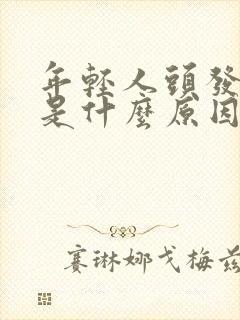 年輕人頭發
是什麼原因
賽琳娜戈梅茲